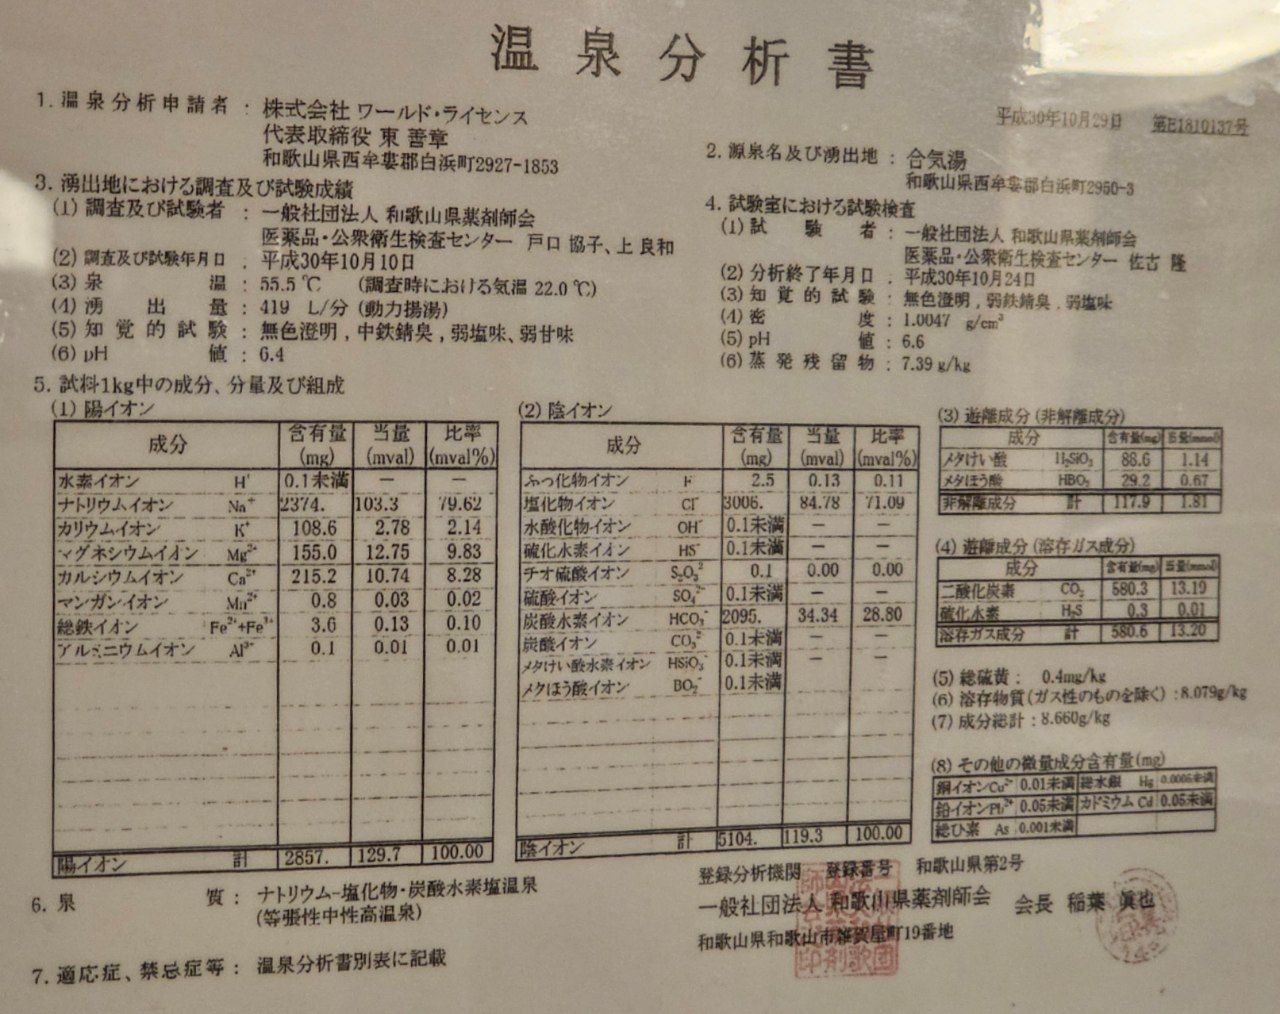 温泉分析書
平成30年10月29日 第E1810137号
1. 温泉分析申請者 : 株式会社 ワールド・ライセンス
代表取締役 東 善章
和歌山県西牟婁郡白浜町2927-1853
2. 源泉名及び湧出地 : 合気湯
和歌山県西牟婁郡白浜町2950-3
3. 湧出地における調査及び試験成績
(1) 調査及び試験者 : 一般社団法人 和歌山県薬剤師会
医薬品・公衆衛生検査センター 戸口 協子、上 良和
(2) 調査及び試験年月日 : 平成30年10月10日
(3) 泉温 : 55.5 ℃ (調査時における気温 22.0 ℃)
(4) 湧出量 : 419 L/分 (動力揚湯)
(5) 知覚的試験 : 無色澄明 , 中鉄錆臭 , 弱塩味、弱甘味
(6) pH値 : 6.4
4. 試験室における試験検査
(1) 試験者 : 一般社団法人 和歌山県薬剤師会
医薬品・公衆衛生検査センター 佐古 隆
(2) 分析終了年月日 : 平成30年10月24日
(3) 知覚的試験 : 無色澄明 , 弱鉄錆臭 , 弱塩味
(4) 密度 : 1.0047 g/cm³
(5) pH値 : 6.6
(6) 蒸発残留物 : 7.39 g/kg
5. 試料1kg中の成分、分量及び組成
(1) 陽イオン
成分 含有量(mg) 当量(mval) 比率(mval%)
水素イオン H⁺ 0.1未満 － －
ナトリウムイオン Na⁺ 2374. 103.3 79.62
カリウムイオン K⁺ 108.6 2.78 2.14
マグネシウムイオン Mg²⁺ 155.0 12.75 9.83
カルシウムイオン Ca²⁺ 215.2 10.74 8.28
マンガンイオン Mn²⁺ 0.8 0.03 0.02
総鉄イオン Fe²⁺+Fe³⁺ 3.6 0.13 0.10
アルミニウムイオン Al³⁺ 0.1 0.01 0.01
陽イオン 計 2857. 129.7 100.00
(2) 陰イオン
成分 含有量(mg) 当量(mval) 比率(mval%)
ふっ化物イオン F⁻ 2.5 0.13 0.11
塩化物イオン Cl⁻ 3006. 84.78 71.09
水酸化物イオン OH⁻ 0.1未満 － －
硫化水素イオン HS⁻ 0.1未満 － －
チオ硫酸イオン S₂O₃²⁻ 0.1 0.00 0.00
硫酸イオン SO₄²⁻ 0.1未満 － －
炭酸水素イオン HCO₃⁻ 2095. 34.34 28.80
炭酸イオン CO₃²⁻ 0.1未満 － －
メタけい酸水素イオン HSiO₃⁻ 0.1未満 － －
メタほう酸イオン BO₂⁻ 0.1未満
陰イオン 計 5104. 119.3 100.00
(3) 遊離成分 (非解離成分)
成分 含有量(mg) 当量(mmol)
メタけい酸 H₂SiO₃ 88.6 1.14
メタほう酸 HBO₂ 29.2 0.67
非解離成分 計 117.9 1.81
(4) 遊離成分 (溶存ガス成分)
成分 含有量(mg) 当量(mmol)
二酸化炭素 CO₂ 580.3 13.19
硫化水素 H₂S 0.3 0.01
溶存ガス成分 計 580.6 13.20
(5) 総硫黄 : 0.4mg/kg
(6) 溶存物質 (ガス性のものを除く) : 8.079g/kg
(7) 成分総計 : 8.660g/kg
(8) その他の微量成分含有量(mg)
銅イオン Cu²⁺ 0.01未満 総水銀 Hg 0.0005未満
鉛イオン Pb²⁺ 0.05未満 カドミウム Cd 0.05未満
総ひ素 As 0.001未満
6. 泉質 : ナトリウム－塩化物・炭酸水素塩温泉
(等張性中性高温泉)
7. 適応症、禁忌症等 : 温泉分析書別表に記載
登録分析機関 登録番号 和歌山県第2号
一般社団法人 和歌山県薬剤師会 会長 稲葉 眞也
和歌山県和歌山市雑賀屋町19番地